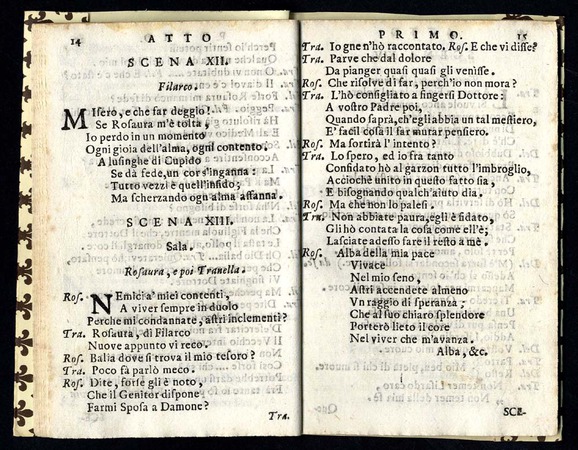 14 ATTO
SCENA XII.
Filarco.
MIsero, e che far deggio!
Se Rosaura m'è tolta,
Io perdo in un momento
Ogni gioia dell'alma, ogni contento.
A lusinghe di Cupido
Se dà fede, un cor s'inganna:
Tutto vezzi è quell'infido;
Ma scherzando ogni alma affanna.
SCENA XIII.
Sala.
Rosaura, e poi Tranella.
Ros. NEmici a' miei contenti,
A viver sempre in duolo
Perche mi condannate, astri inclementi?
Tra. Rosaura, di Filarco
Nuove appunto vi reco.
Ros. Balia dove si trova il mio tesoro?
Tra. Poco fà parlò meco.
Ros. Dite, forse gli è noto,
Che il Genitor dispone
Farmi Sposa a Damone?
Tra.
PRIMO. 15
Tra. Io gne n'hò raccontato. Ros. E che vi disse?
Tra. Parve che dal dolore
Da pianger quasi quasi gli venisse.
Ros. Che risolve di far, perch'io non mora?
Tra. L'hò consigliato a fingersi Dottore:
A vostro Padre poi,
Quando saprà, ch'egli abbia un tal mestiero,
E' facil cosa il far mutar pensiero.
Ros. Ma sortirà l'intento?
Tra. Lo spero, ed io fra tanto
Confidato hò al garzon tutto l'imbroglio,
Acciochè unito in questo fatto sia,
E bisognando qualch'aiuto dia.
Ros. Ma che non lo palesi.
Tra. Non abbiate paura, egli è fidato,
Gli hò contata la cosa come ell'è;
Lasciate adesso fare il resto a mè.
Ros. Alba della mia pace
Vivace
Nel mio seno,
Astri accendete almeno
Vn raggio di speranza;
Che al suo chiaro splendore
Porterò lieto il core
Nel viver che m'avanza.
Alba, &c.
SCE-